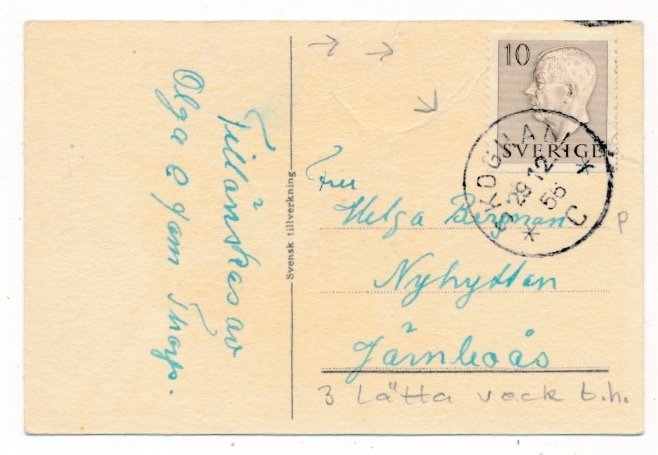 Tillönskas av
Olga o fam Thorp.
Svensk tillverkning
10
SVERIGE
29 12
55
C
Fru
Helga Bergman
Nyhyttan
Järnboås
3 Lätta veck t.h.
P